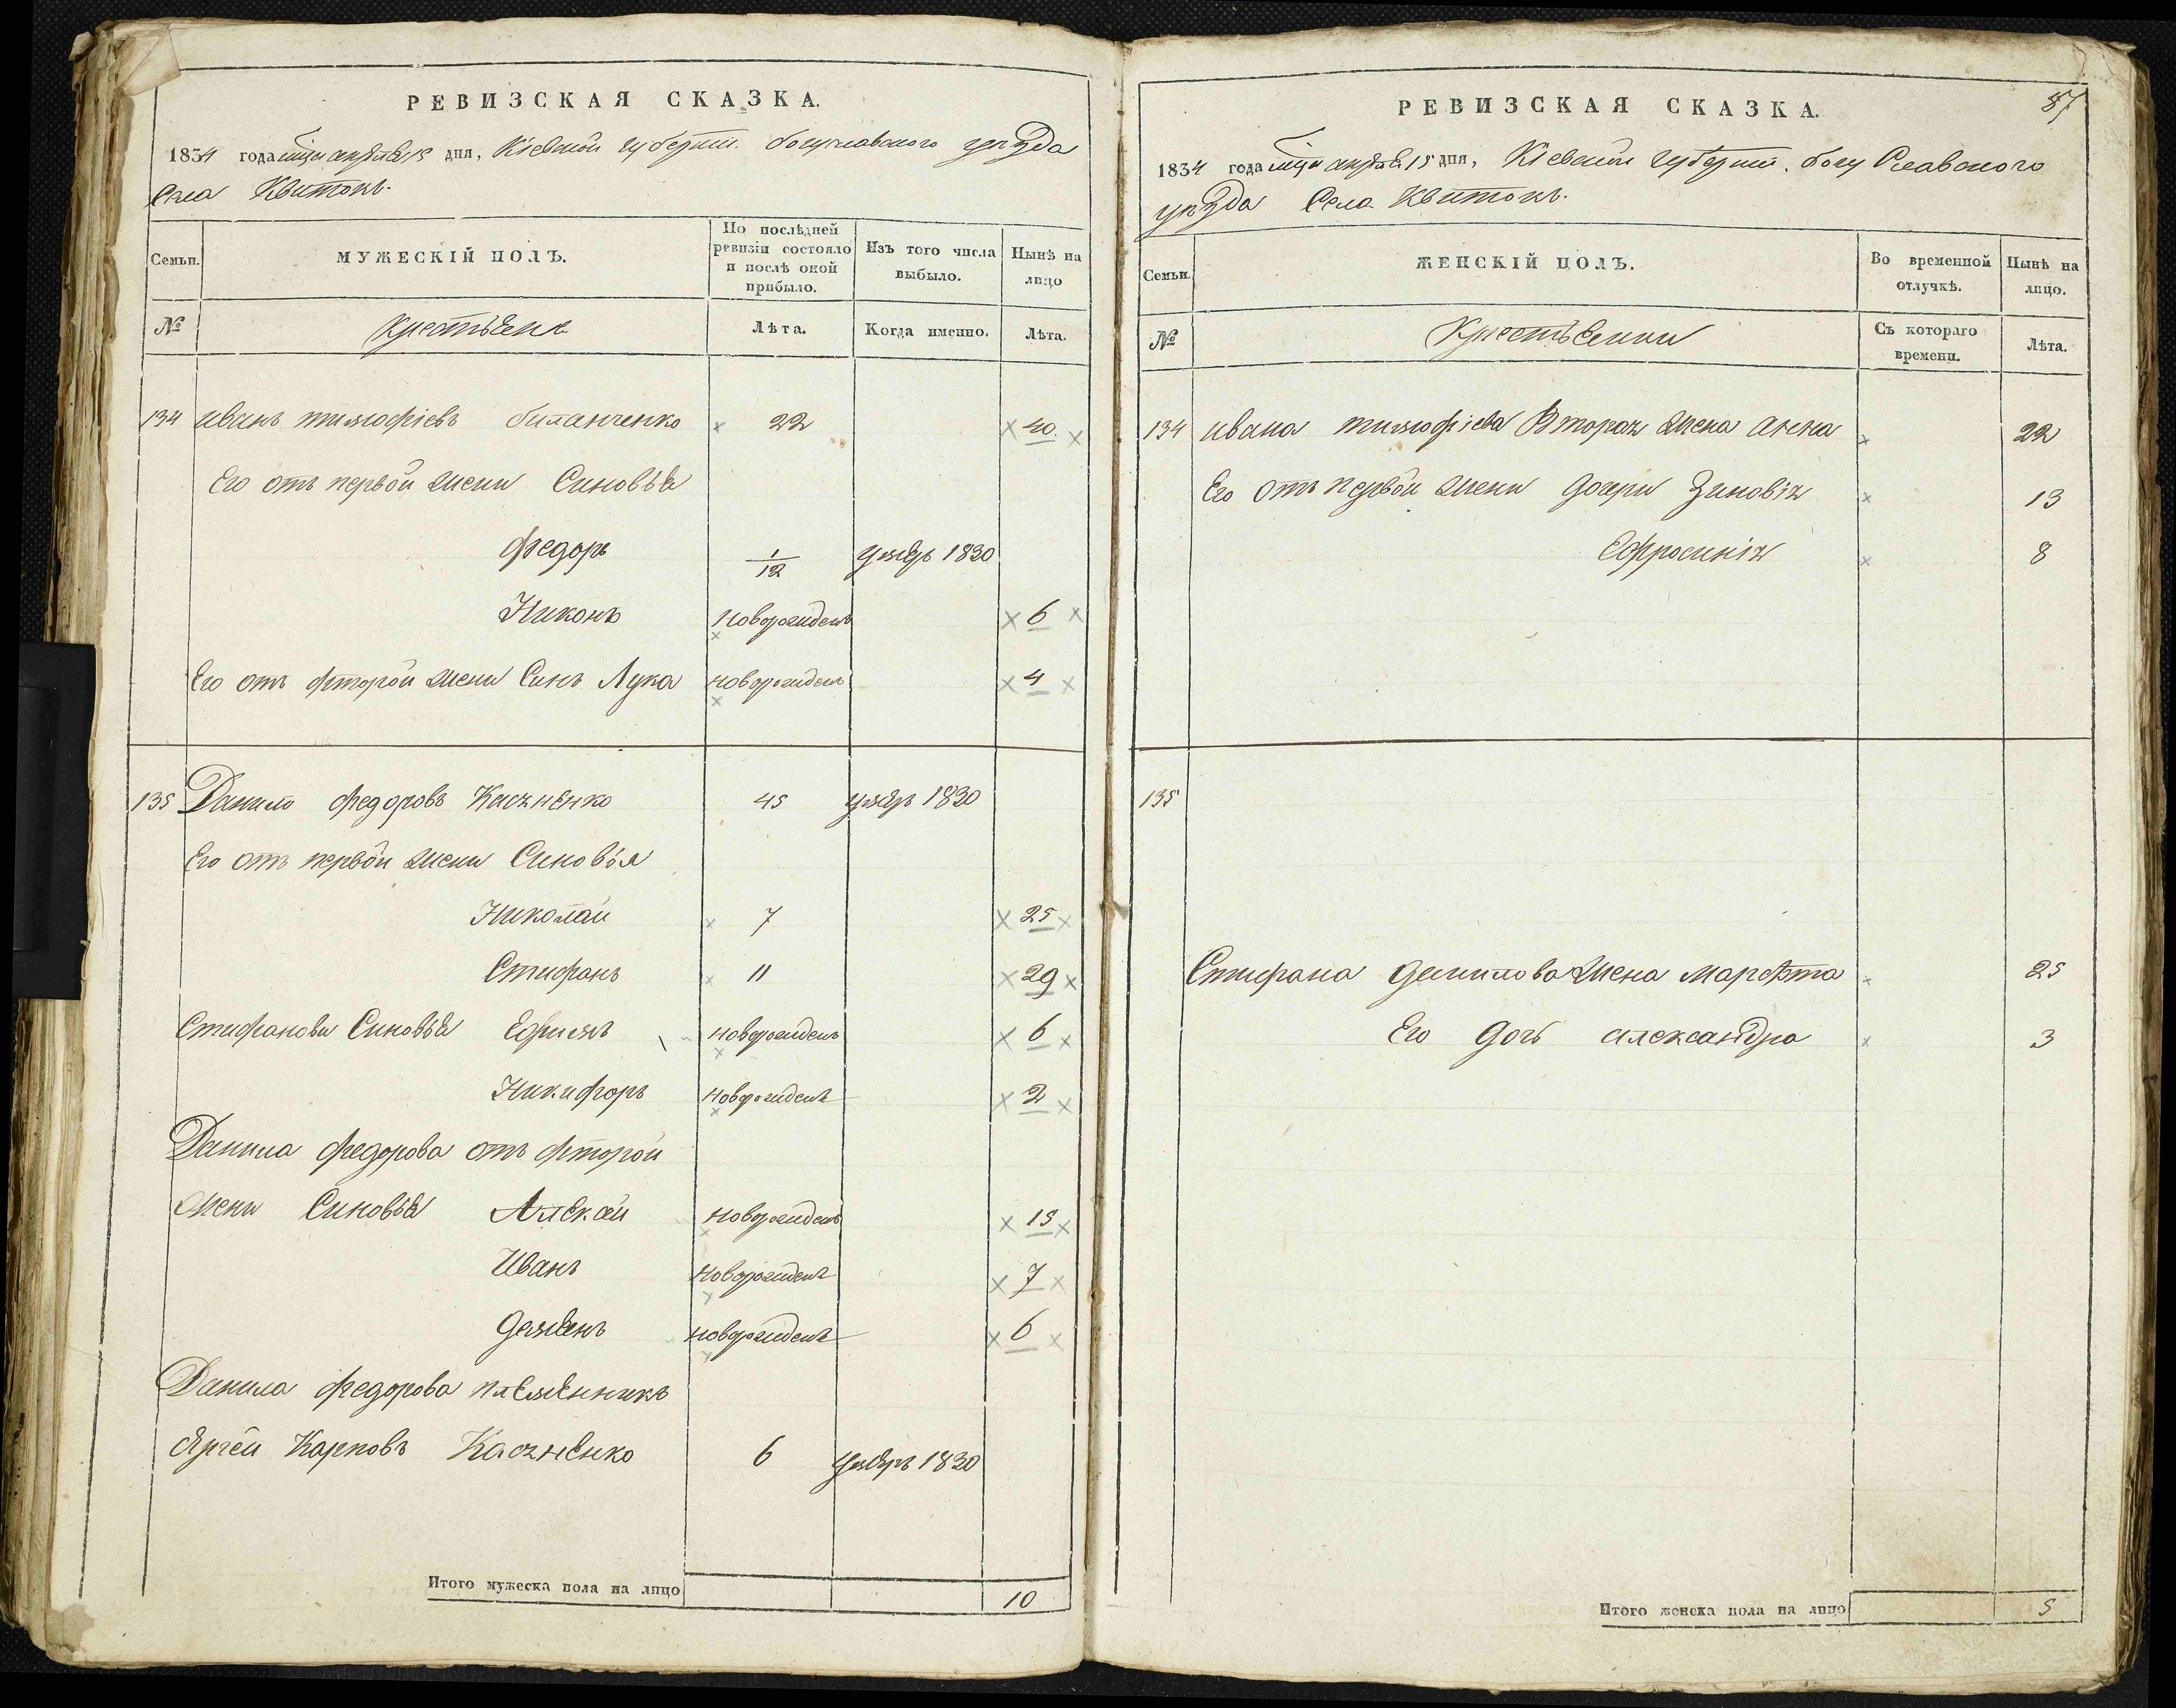 РЕВИЗСКАЯ СКАЗКА.
1834 года мца апреля 15 дня, Кіевской губерніи богуславского уезда
села Квитокъ.
Семьи. МУЖЕСКІЙ ПОЛЪ. По послѣдней ревизіи состояло и послѣ оной прибыло. Изъ того числа выбыло. Нынѣ на лицо
№ Крестьяне Лѣта. Когда именно. Лѣта.
134 иванъ тимофіевъ биланченко 22 40.
Его отъ первой жени Синовья
федоръ 1/12 умеръ 1830
Никонъ новорожденъ 6
Его отъ фторой жени Синъ Лука новорожденъ 4
135 Данило федоровъ 45 умеръ 1830
Его отъ первой жени Синовья
Николай 7 25
Стифанъ 11 29
Стифанови Синовье Ефимъ новорожденъ 6
Никифоръ новорожденъ 2
Данила федорова отъ фторой
жени Синовье новорожденъ 15
Иванъ новорожденъ 7
Деменъ новорожденъ 6
Данила федорова племенникъ
Карповъ 6 умеръ 1830
Итого мужеска пола на лицо 10
87
РЕВИЗСКАЯ СКАЗКА.
1834 года мца апреля 15 дня, Кіевской губерніи. богу Славского
уезда Села Квитокъ.
Семьи. ЖЕНСКІЙ ПОЛЪ. Во временной отлучкѣ. Нынѣ на лицо.
№ Крестьянки Съ котораго времени. Лѣта.
134 ивана тимофіева Вторая жена анна 22
Его отъ первой жени дочери Зиновія 13
Ефросинія 8
135
Стифана данилова жена марфта 25
Его дочь александра 3
Итого женска пола на лицо 5